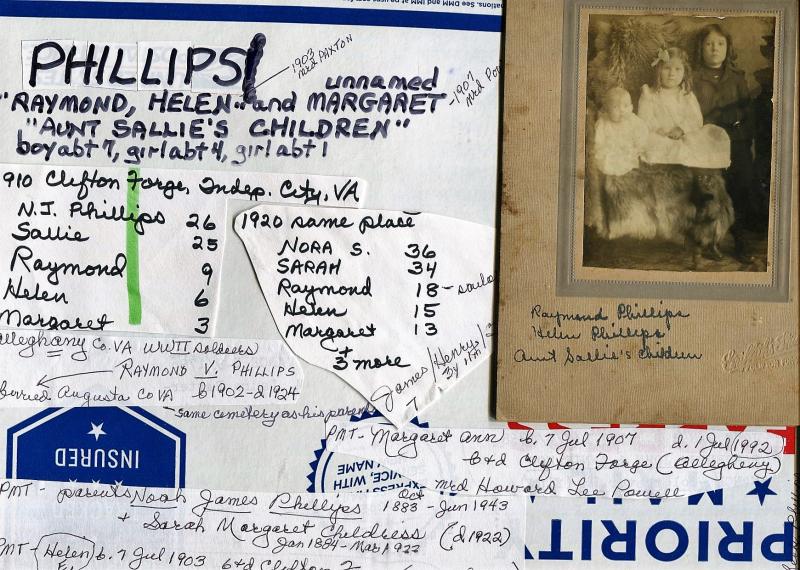 ations. See DMM and IMM at pe.usps.com
PHILLIPS
1903
mrd PAXTON
unnamed
-1907
"RAYMOND, HELEN" and MARGARET
"AUNT SALLIE'S CHILDREN"
boy abt 7, girl abt 4, girl abt 1
910 Clifton Forge, Indep. City, VA
N.J. Phillips 26
Sallie 25
Raymond 9
Helen 6
Margaret 3
1920 same place
NORA S. 36
SARAH 34
Raymond 18
Helen 15
Margaret 13
+
3 more
James/Henry/
7
Raymond Phillips
Helen Phillips
Aunt Sallie's Children
allegheny Co. VA WWII soldiers
RAYMOND V. PHILLIPS
buried Augusta Co VA b1902-d1924
same cemetery as his parents
PMT - Margaret Ann b. 7 Jul 1907 d. 1 Jul (1992)
b+d Clifton Forge (Allegheny)
mrd Howard Lee Powell
INSURED
EXPRESS MA
VICE, WITH
NAME
PMT - parents Noah James Phillips Oct 1883 - Jun 1943
+ Sarah Margaret Childress (d 1922)
Jan 1884 - Mar 1922
PMT - Helen b. 7 Jul 1903 b+d Clifton F
PRIORITY
MAIL